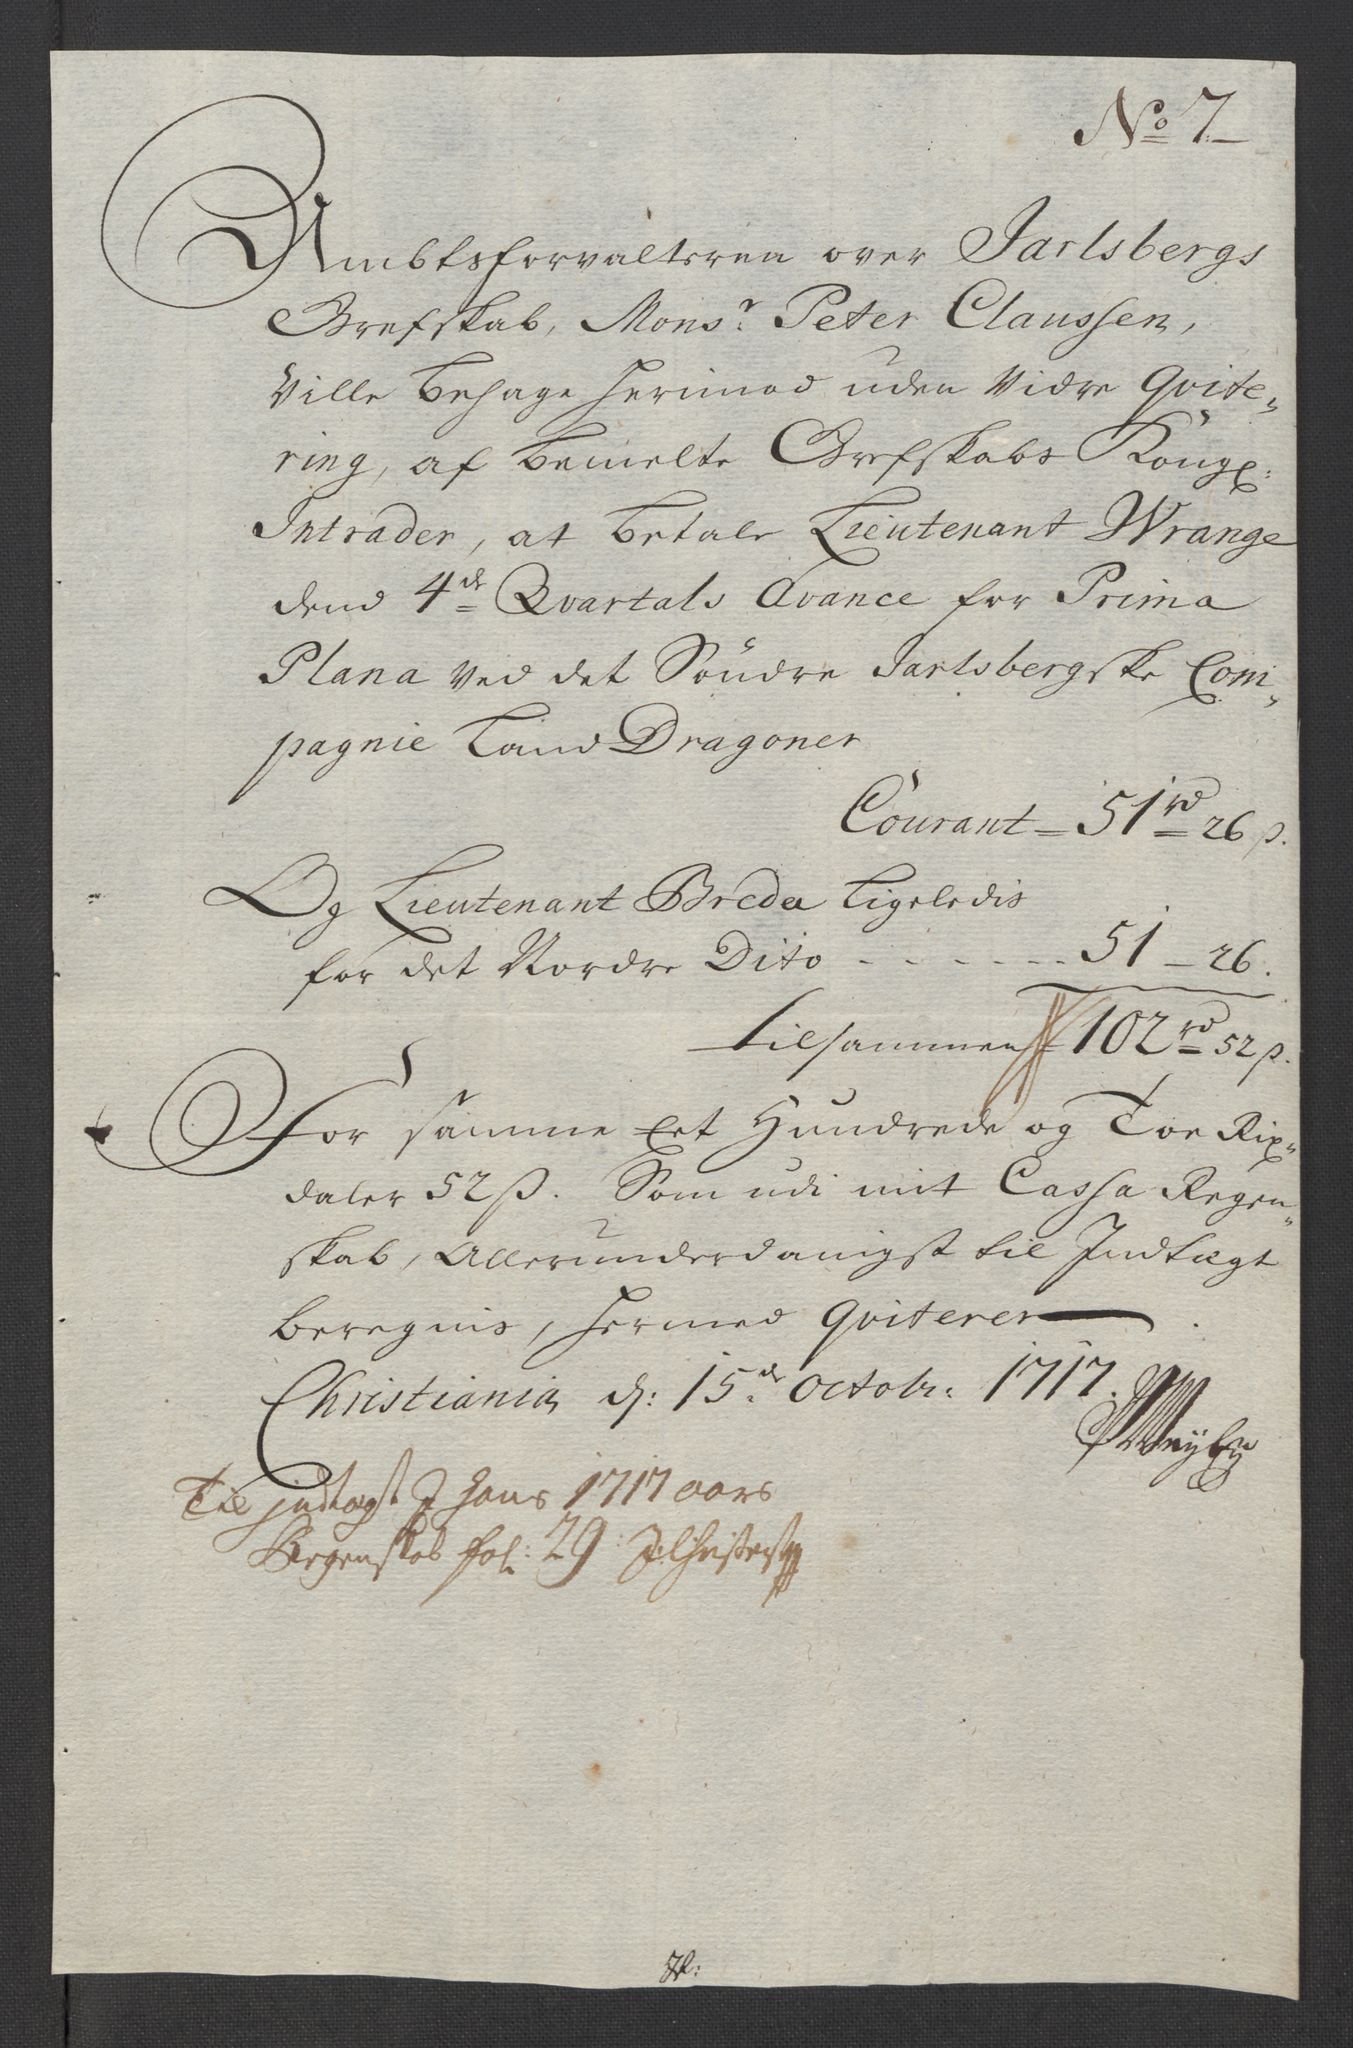 No 7
Ambtsforvalteren over Jarlsbergs
Grefskab, Monsr. Peter Claussen,
Ville behage herimod uden Vidre qvite-
ring, af bemelte Grefskabs Kongl:
Intrader, at betale Lieutenant Wrange
dend 4de Qvartals Avance for Prima
Plana ved det Söndre Jarlsbergske Com-
pagnie Land Dragoner
Courant – 51 rd 26 ß.
Og Lieutenant Breda ligeledis
for det Nordre Dito - - - - - - 51 – 26.
tilsammen 102 rd 52 ß.
For samme Eet Hundrede og Toe Rix-
daler 52 ß. Som udi mit Cassa Regen-
skab, Allerunderdanigst til Indtægt
beregnis, hermed qviterer
Christiania d: 15de Octobr: 1717.
Til jndtægt J hans 1717 aars
Regenskab fol: 29